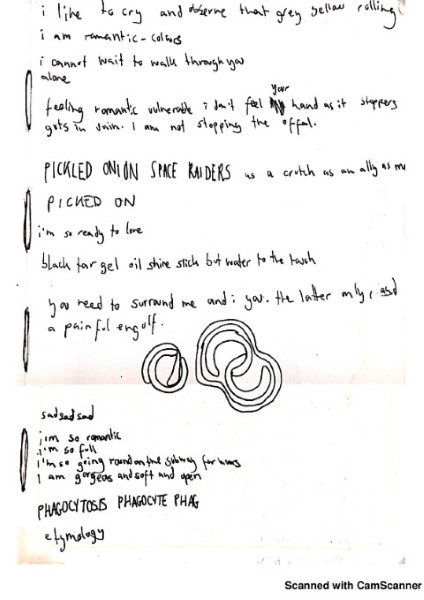 i like to cry and observe that grey yellow rolling
i am romantic-colours
i cannot wait to walk through you
alone
feeling romantic vulnerable i don't feel your hand as it stoppers
guts in vain. I am not stopping the offal.
PICKLED ONION SPACE RAIDERS as a crutch as an ally as me
PICKED ON
i'm so ready to love
black tar gel oil shine slick but water to the touch
you need to surround me and i you. the latter only,
a painful engulf.
sadsadsad
i'm so romantic
i'm so full
i'm so going round on the subway for hours
I am gorgeous and soft and open
PHAGOCYTOSIS PHAGOCYTE PHAG
etymology
Scanned with CamScanner